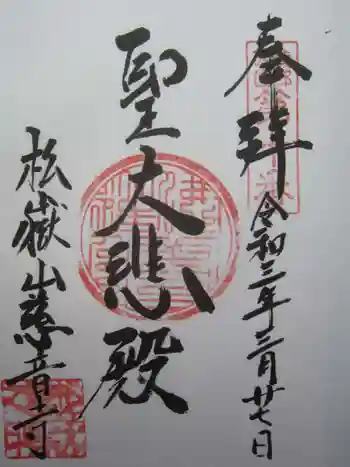 奉拝 令和三年三月廿七日
聖大悲殿
松嶽山慈音寺